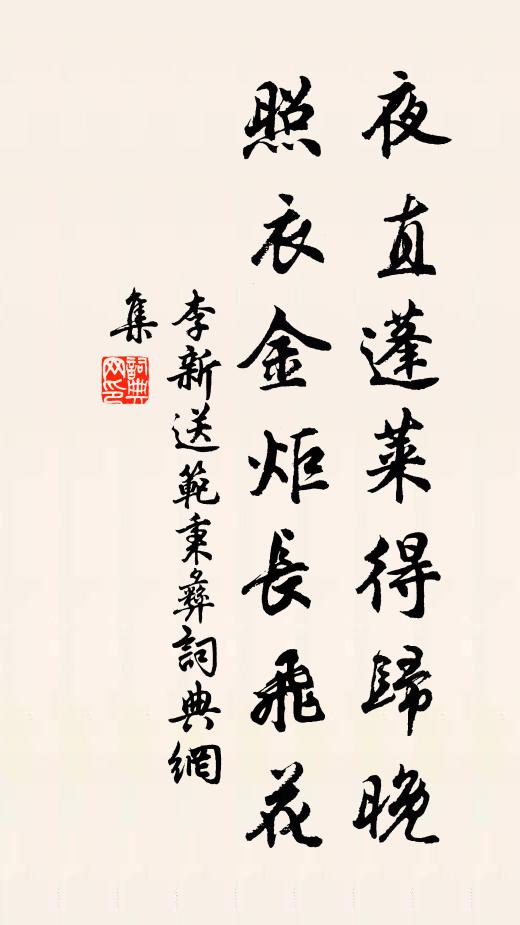 夜直蓬萊得歸晚
照衣金炬長飛花
李新送範秉彝詞典網
集
詞典網印